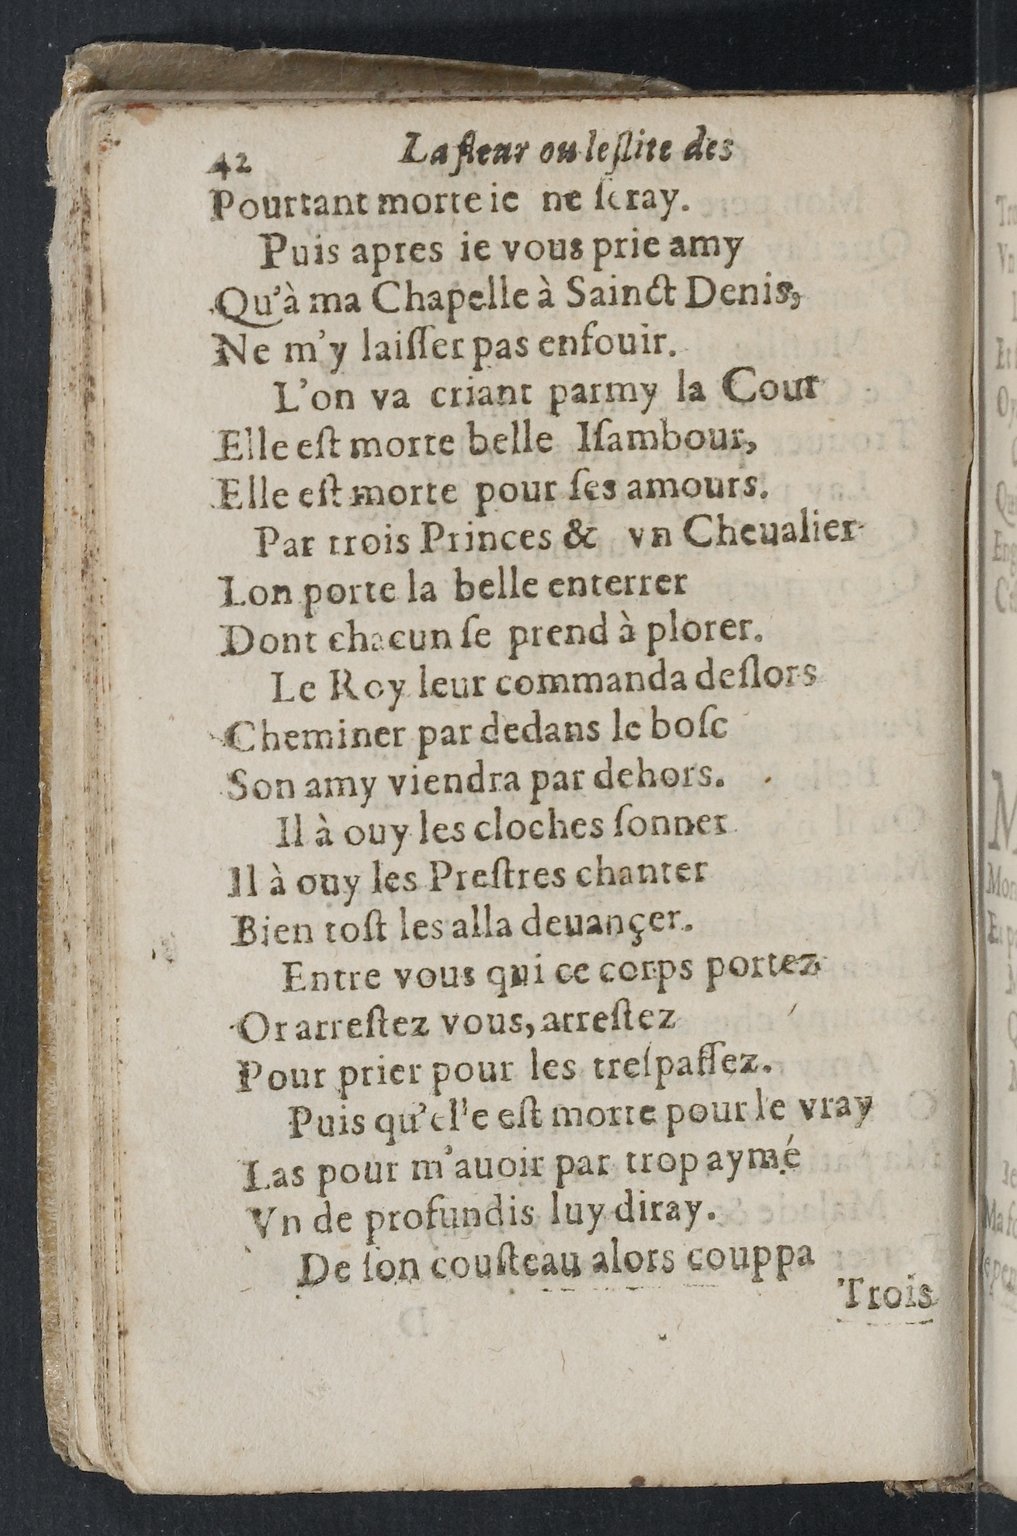 42 La fleur ou leſlite des
Pourtant morte ie ne ſeray.
Puis apres ie vous prie amy
Qu'à ma Chapelle à Sainct Denis,
Ne m'y laiſſer pas enfouir.
L'on va criant parmy la Cour
Elle eſt morte belle Iſambour,
Elle eſt morte pour ſes amours.
Par trois Princes & vn Cheualier
Lon porte la belle enterrer
Dont chacun ſe prend à plorer.
Le Roy leur commanda deſlors
Cheminer par dedans le boſc
Son amy viendra par dehors.
Il à ouy les cloches ſonner
Il à ouy les Preſtres chanter
Bien toſt les alla deuançer.
Entre vous qui ce corps portez
Or arreſtez vous, arreſtez
Pour prier pour les treſpaſſez.
Puis qu'elle eſt morte pour le vray
Las pour m'auoir par trop aymé
Vn de profundis luy diray.
De ſon couſteau alors couppa
Trois